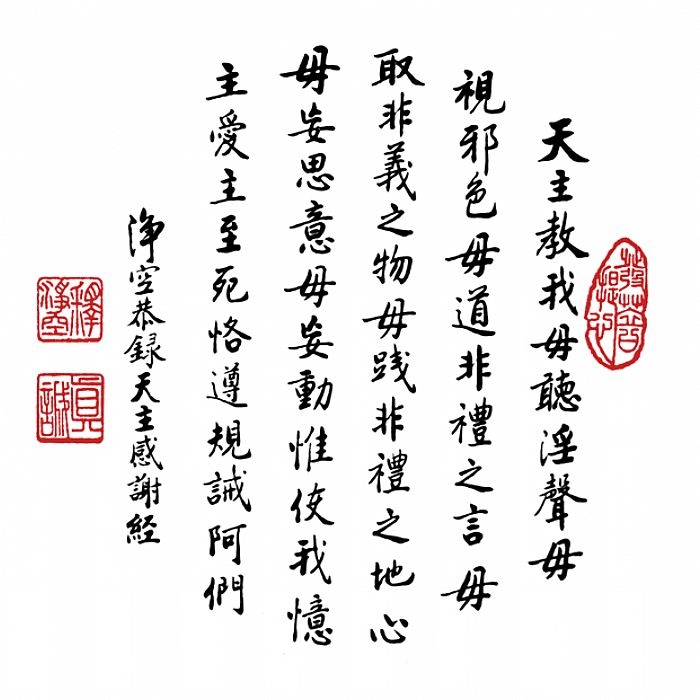 天主教我毋聽淫聲毋
視邪色毋道非禮之言毋
取非義之物毋踐非禮之地心
毋妄思意毋妄動惟使我憶
主愛主至死恪遵規誡阿們
淨空恭録天主感謝経
釋淨空
真誠